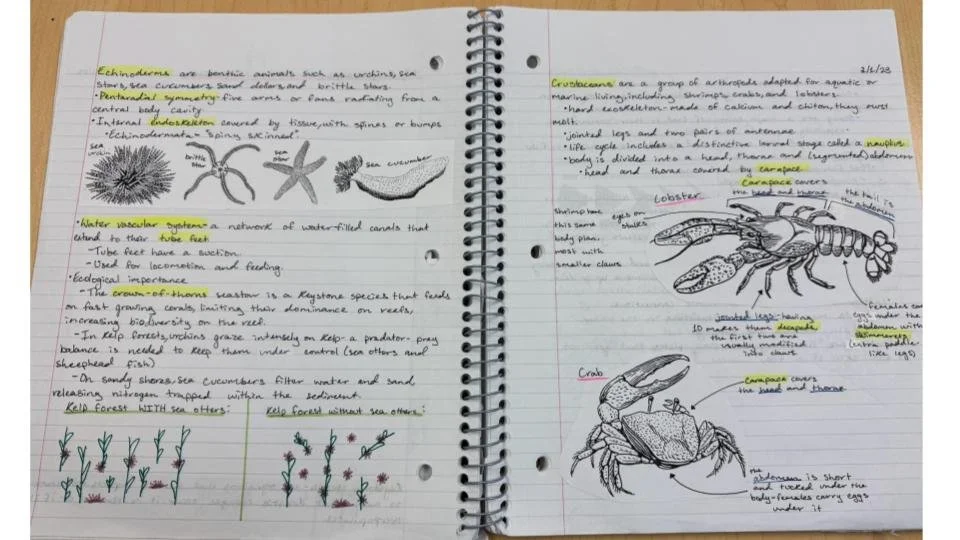 Echinoderms are benthic animals such as urchins, sea
stars, sea cucumbers, sand dollars, and brittle stars.
•Pentaradial symmetry- five arms or fans radiating from a
central body cavity
•Internal endoskeleton covered by tissue, with spines or bumps
•Echinodermata- "spiny skinned"
sea urchin
brittle star
sea star
sea cucumber
•Water vascular system- a network of water-filled canals that
extend to their tube feet
-Tube feet have a suction.
-Used for locomotion and feeding.
•Ecological importance
-The crown-of-thorns seastar is a keystone species that feeds
on fast growing corals, limiting their dominance on reefs,
increasing biodiversity on the reef.
-In kelp forests, urchins graze intensely on kelp- a predator-prey
balance is needed to keep them under control (sea otters and
sheephead fish)
-On sandy shores, sea cucumbers filter water and sand,
releasing nitrogen trapped within the sediment.
Kelp forest WITH sea otters:
Kelp forest without sea otters:
2/2/23
Crustaceans are a group of arthropods adapted for aquatic or
marine living, including shrimps, crabs, and lobsters.
•hard exoskeleton- made of calcium and chiton, they must
molt.
•jointed legs and two pairs of antennae
•life cycle includes a distinctive larval stage called a nauplius
•body is divided into a head, thorax and (segmented) abdomen
•head and thorax covered by carapace
Lobster
Carapace covers
the head and thorax
the tail is
the abdomen
shrimp have
this same
body plan,
most with
smaller claws
eyes on
stalks
jointed legs- having
10 makes them decapods,
the first two are
usually modified
into claws
females carry
eggs under the
abdomen with
swimmerets
(extra paddle
like legs)
Crab
Carapace covers
the head and thorax
the
abdomen is short
and tucked under the
body- females carry eggs
under it